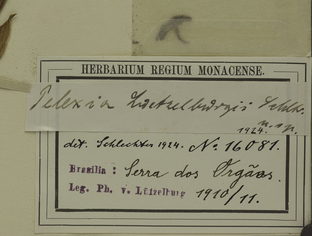 HERBARIUM REGIUM MONACENSE.
Pelexia Luetzelburgii Schltr.
n. sp.
1924.
det. Schlechter 1924. No. 16081.
Brasilia: Serra dos Orgãos.
Leg. Ph. v. Lützelburg 1910/11.